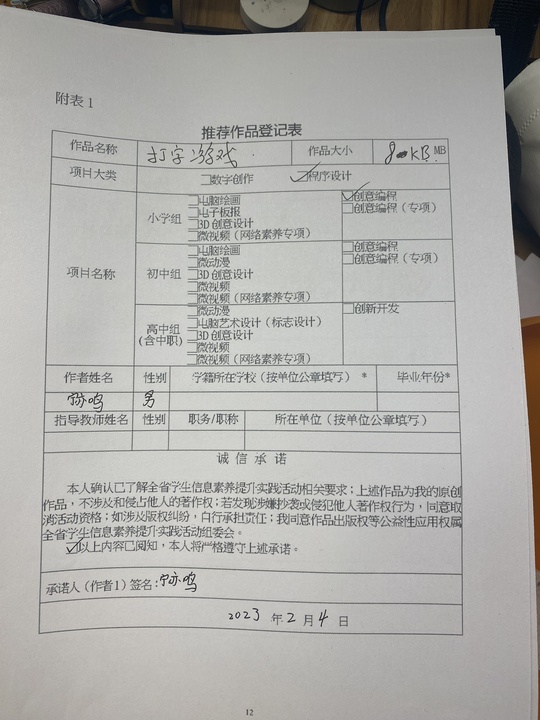 附表1
推荐作品登记表
作品名称 打字游戏 作品大小 KB MB
项目大类 □数字创作 ☑程序设计
项目名称
小学组
□电脑绘画
□电子板报
□3D创意设计
□微视频（网络素养专项）
☑创意编程
□创意编程（专项）
初中组
□电脑绘画
□微动漫
□3D创意设计
□微视频
□微视频（网络素养专项）
□创意编程
□创意编程（专项）
高中组
(含中职)
□微动漫
□电脑艺术设计（标志设计）
□3D创意设计
□微视频
□微视频（网络素养专项）
□创新开发
作者姓名 性别 学籍所在学校（按单位公章填写）* 毕业年份*
鸣 男
指导教师姓名 性别 职务/职称 所在单位（按单位公章填写）
诚信承诺
本人确认已了解全省学生信息素养提升实践活动相关要求；上述作品为我的原创
作品，不涉及和侵占他人的著作权；若发现涉嫌抄袭或侵犯他人著作权行为，同意取
消活动资格；如涉及版权纠纷，自行承担责任；我同意作品出版权等公益性应用权属
全省学生信息素养提升实践活动组委会。
☑以上内容已阅知，本人将严格遵守上述承诺。
承诺人（作者1）签名：鸣
2023 年 2 月 4 日
12